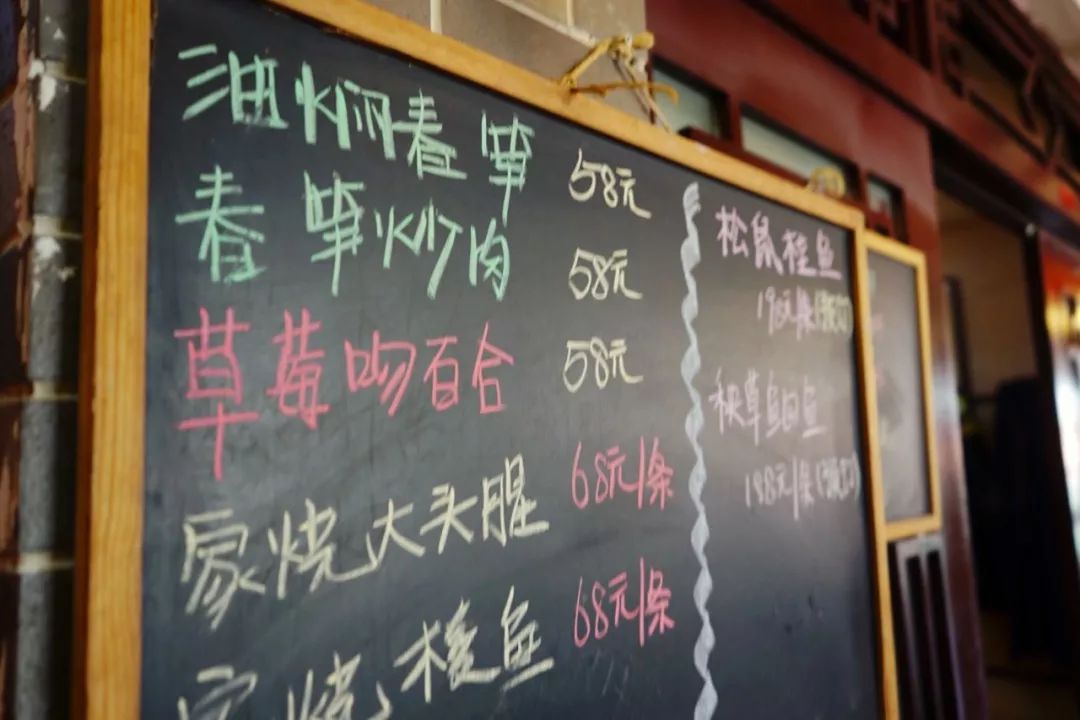 油焖春笋 58元
春笋炒肉 58元
草莓吻百合 58元
家烧大头腥 68元/条
家烧梭鱼 68元/条
松鼠桂鱼
198元/条(预定)
秧草鱼
198元/条(预定)